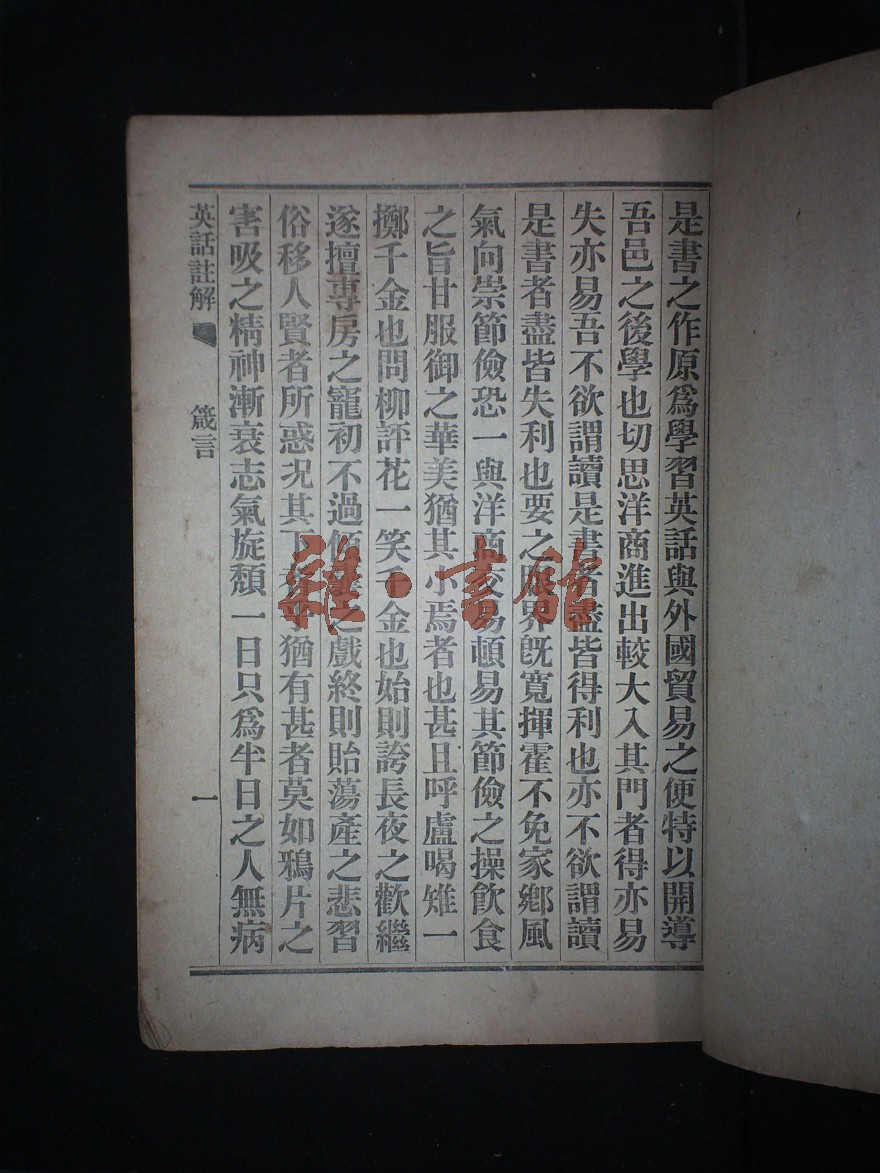 是書之作原爲學習英話與外國貿易之便特以開導
吾邑之後學也切思洋商進出較大入其門者得亦易
失亦易吾不欲謂讀是書者盡皆得利也亦不欲謂讀
是書者盡皆失利也要之眼界旣寬揮霍不免家鄉風
氣向崇節儉恐一與洋商交易頓易其節儉之操飮食
之旨甘服御之華美猶其小焉者也甚且呼盧喝雉一
擲千金也問柳評花一笑千金也始則誇長夜之歡繼
遂擅專房之寵初不過之戲終則貽蕩產之悲習
俗移人賢者所惑況其下乎猶有甚者莫如鴉片之
害吸之精神漸衰志氣旋頹一日只爲半日之人無病
英話註解 箴言 一
雜·書館